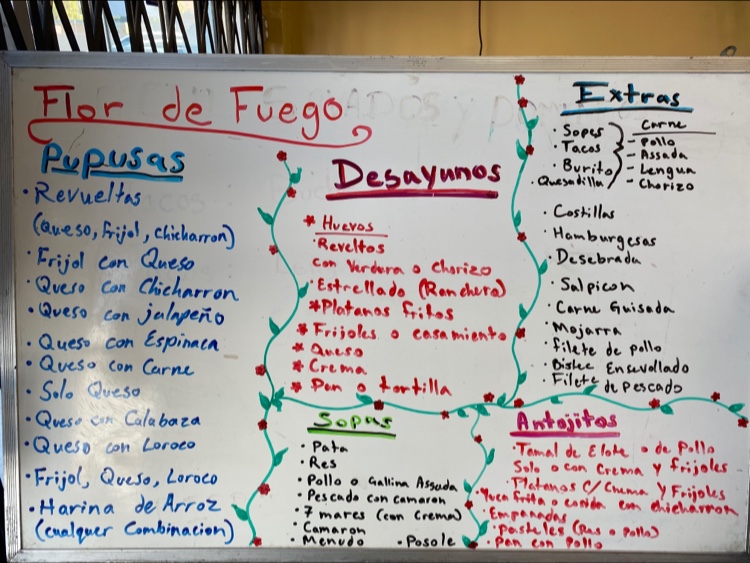 Flor de Fuego
Pupusas
• Revueltas
(Queso, Frijol, Chicharron)
• Frijol con Queso
• Queso con Chicharron
• Queso con jalapeño
• Queso con Espinaca
• Queso con Carne
• Solo Queso
• Queso con Calabaza
• Queso con Loroco
• Frijol, Queso, Loroco
• Harina de Arroz
(cualquer Combinacion)
Desayunos
* Huevos
• Reveltos
con Verdura o Chorizo
• Estrellado (Ranchera)
* Platanos fritos
* Frijoles o casamiento
* Queso
* Crema
* Pan o tortilla
Extras
• Sopes
• Tacos
• Burito
• Quesadilla
Carne
- Pollo
- Assada
- Lengua
- Chorizo
• Costillas
• Hamburgesas
• Desebrada
• Salpicon
• Carne Guisada
• Mojarra
• filete de pollo
• Bistec Encevollado
• Filete de Pescado
Sopas
• Pata
• Res
• Pollo o Gallina Assada
• Pescado con camaron
• 7 mares (con Crema)
• Camaron
• Menudo • Posole
Antojitos
• Tamal de Elote o de Pollo
Solo o con Crema y frijoles
• Platanos C/ Crema y Frijoles
• Yuca frita o cosida con chicharron
• Empanadas
• Pasteles (Res o Pollo)
• Pan con Pollo